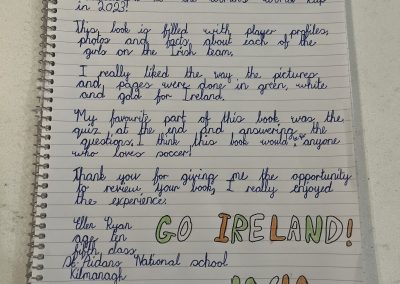 in 2023!
This book is filled with player profiles,
photos and facts about each of the
girls on the Irish team.
I really liked the way the pictures
and pages were done in green, white
and gold for Ireland.
My favourite part of this book was the
quiz at the end and answering the
questions. I think this book would anyone
who loves soccer!
Thank you for giving me the opportunity
to review your book, I really enjoyed
the experience.
Ellen Ryan
age ten
fifth class
St. Aidans National school
Kilmanagh
GO IRELAND!